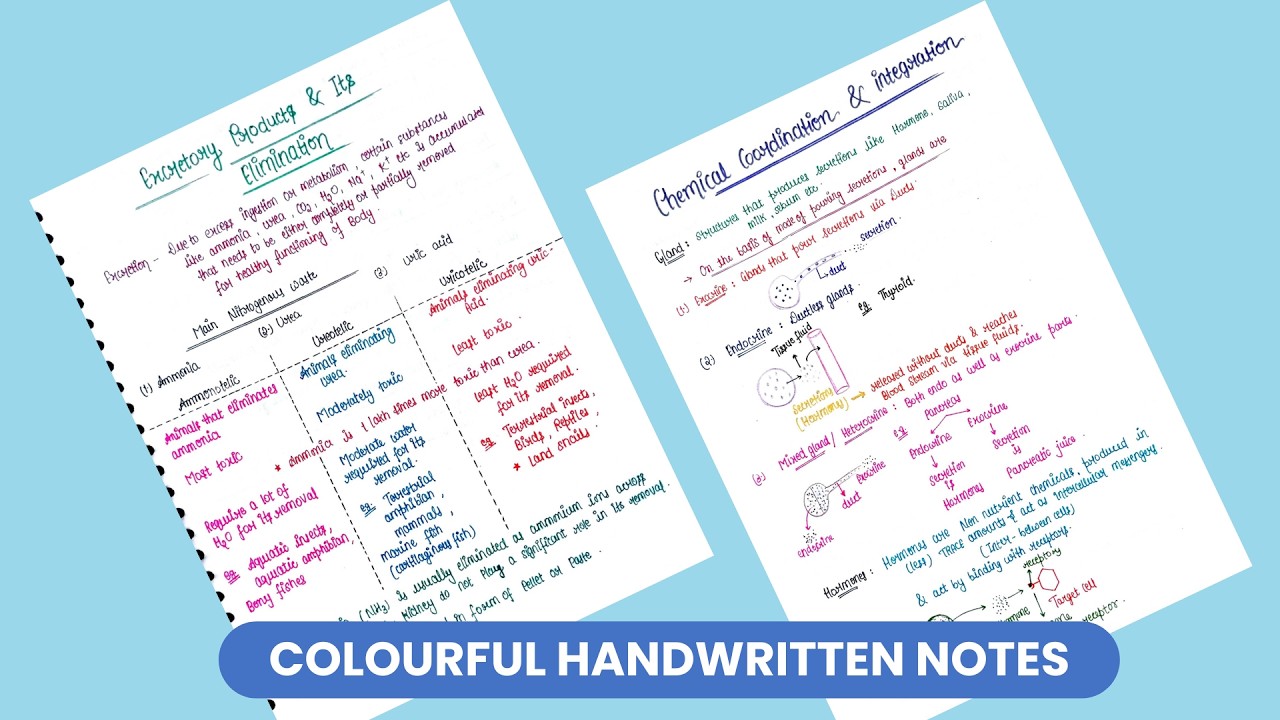 Excretory Products & Its
Elimination
Excretion – Due to excess ingestion or metabolism, certain substances
like ammonia, urea, CO₂, H₂O, Na⁺, K⁺ etc is accumulated
that needs to be either completely or partially removed
for healthy functioning of Body.
Main Nitrogenous waste
(1) Ammonia
(2) Urea
(3) Uric acid
Ammonotelic
Animals that eliminates
ammonia
Most toxic
Requires a lot of
H₂O for its removal
eg Aquatic insects,
aquatic amphibian,
Bony fishes
Ureotelic
Animals eliminating
urea.
Moderately toxic
* Ammonia is 1 lakh times more toxic than urea.
Moderate water
required for its
removal.
eg Terrestrial
amphibian,
mammals,
marine fish,
(cartilaginous fish)
Uricotelic
Animals eliminating uric
Acid.
least toxic.
least H₂O required
for its removal.
eg Terrestrial insects,
Birds, Reptiles,
* Land snails
(NH₃) is usually eliminated as ammonium ions across
Kidney do not play a significant role in its removal.
in form of Pellet or Paste.
Chemical Coordination & integration
Gland: Structures that produces secretions like Harmone, Saliva,
milk, serum etc.
→ On the basis of mode of pouring secretions, glands are
(1) Exocrine: Glands that pour secretions via Ducts.
secretion.
duct
(2) Endocrine: Ductless glands.
eg Thyroid.
Tissue fluid
secretions
(Harmons)
→ released without ducts & reaches
Blood stream via tissue fluids.
(3) Mixed gland / Heterocrine: Both endo as well as exocrine parts.
eg Pancreas
Endocrine
Secretion
is
Hormons
Exocrine
Secretion
Pancreatic juice.
exocrine
duct
endocrine
Harmons: Hormons are Non nutrient chemicals, produced in
(less) Trace amounts & act as intercellular messengers.
(Inter-between cells)
& act by binding with receptors.
receptors
Target cell
receptor.
COLOURFUL HANDWRITTEN NOTES